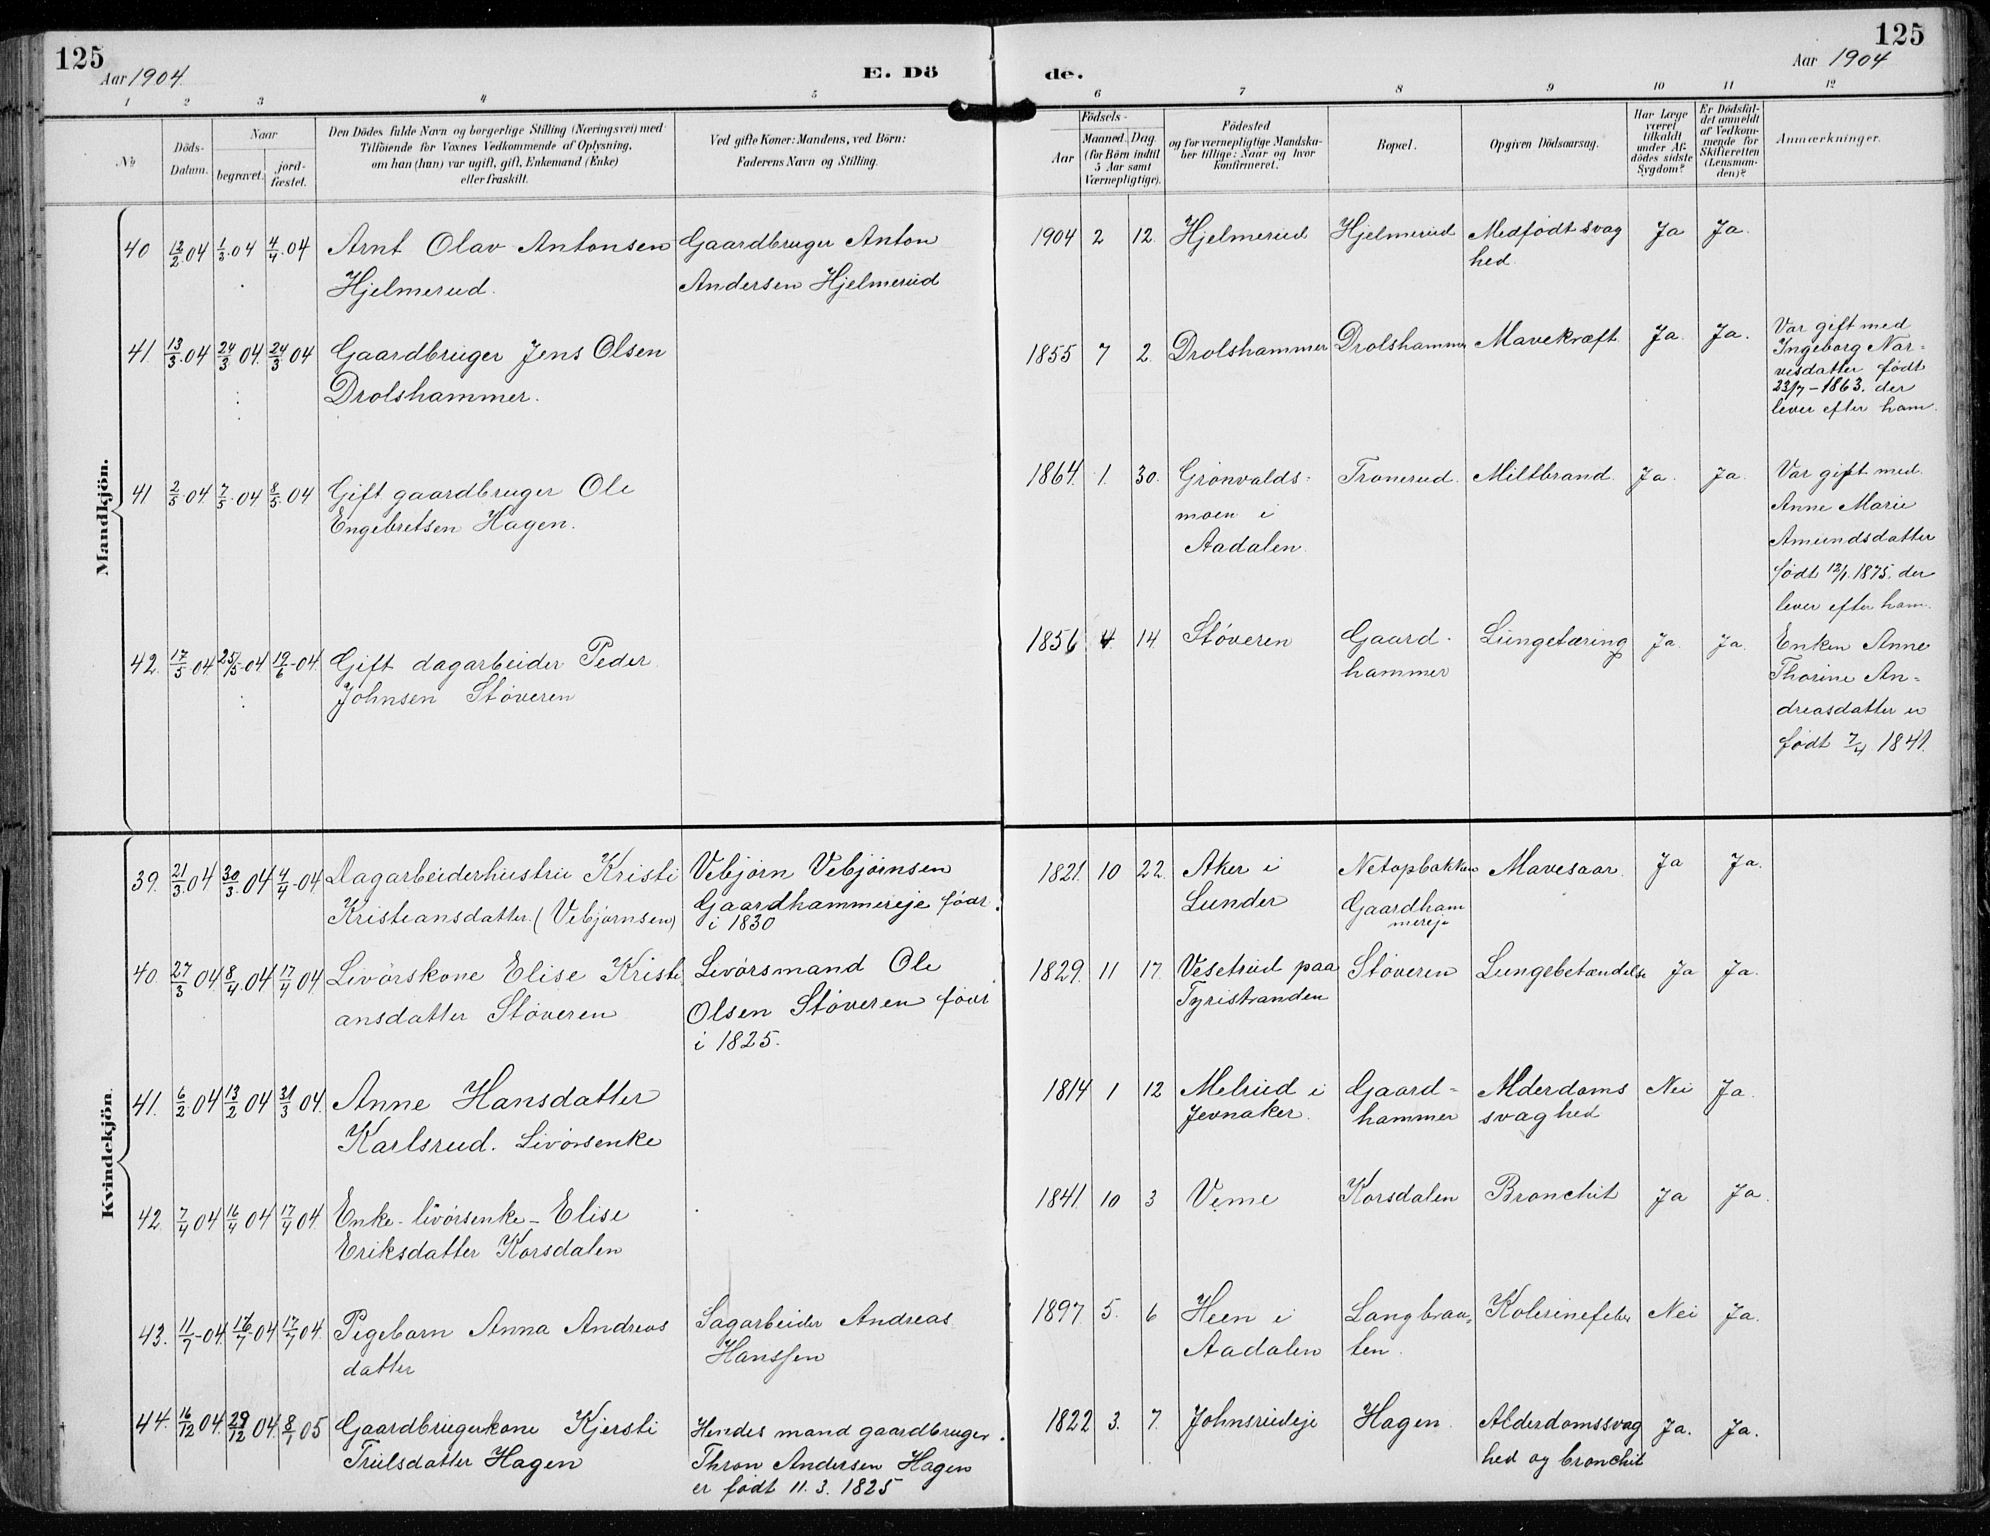 125
Aar 1904.
E. Dö
de.
125
Aar 1904
1 2 3 4 5 6 7 8 9 10 11 12
No
Döds-Datum.
Naar
begravet.
jordfæstet.
Den Dödes fulde Navn og borgerlige Stilling (Næringsvei) med
Tilföiende for Voxnes Vedkommende af Oplysning,
om han (hun) var ugift, gift, Enkemand (Enke)
eller fraskilt.
Ved gifte Koner: Mandens, ved Börn:
Faderens Navn og Stilling.
Födsels-
Aar
Maaned. Dag.
(for Börn indtil
5 Aar samt
Værnepligtige).
Födested
og for værnepligtige Mandska-
ber tillige: Naar og hvor
konfirmeret.
Bopæl.
Opgiven Dödsaarsag.
Har Læge
været
tilkaldt
under Af-
dödes sidste
Sygdom?
Er Dödsfal-
det anmeldt
af Vedkom-
mende for
Skifteretten
(Lensman-
den)?
Anmærkninger.
Mandkjön.
40 12/2.04 1/3.04 4/4.04 Arnt Olav Antonsen Gaardbruger Anton 1904 2 12. Hjelmerud Hjelmerud Medfødt svag Ja Ja.
Hjelmerud. Andersen Hjelmerud hed.
41. 13/3.04 24/3.04. 24/3 04 Gaardbruger Jens Olsen 1855 7 2. Drolshammer Drolshammer Mavekræft. Ja. Ja. Var gift med
Drolshammer. Ingeborg Nar=
visdatter født
23/7-1863. der
lever efter ham.
41 2/5.04. 7/5.04 8/5.04 Gift gaardbruger Ole 1864. 1. 30. Grönvalds= Tronerud. Miltbrand. Ja. Ja. Var gift med.
Engebretsen Hagen. moen i Anne Marie
Aadalen. Amundsdatter
født 12/1.1875. der
lever efter ham.
42. 17/5 04. 25/5-04 19/6-04. Gift dagarbeider Peder 1856 4. 14. Støveren Gaard- Lungetæring Ja. Ja. Enken Anne
Johnsen Støveren hammer Thorine An=
dreasdatter er
født 7/4 1841.
Kvindekjön.
39. 21/3.04 30/3.04 4/4-04 Dagarbeiderhustru Kristi Vebjørn Vebjørnsen 1821. 10 22. Aker i Netopbakken Mavesaar. Ja Ja.
Kristiansdatter. (Vebjørnsen) Gaardhammereje født Lunder Gaardham
i 1830 mereje
40. 27/3 04 8/4.04 17/4 04 Livörskone Elise Kristi Livörsmand Ole 1829. 11 17. Vesetrud paa Støveren Lungebetændelse Ja Ja.
ansdatter Støveren Olsen Støveren født Tyristranden
i 1825.
41. 6/2 04 13/2 04 31/3 04. Anne Hansdatter 1814 1 12 Melrud i Gaard= Alderdoms Nei Ja.
Karlsrud. Livörsenke Jevnaker. hammer svaghed
42. 7/4 04 16/4 04 17/4 04. Enke-livörsenke-Elise 1841. 10 3 Veme Korsdalen Bronchit Ja Ja.
Eriksdatter Korsdalen
43. 11/7-04. 16/7-04 17/7 04. Pigebarn Anna Andreas Sagarbeider Andreas 1897. 5. 6 Heen i Langbraa, Kolerinefeber Nei Ja.
datter Hanssen Aadalen ten.
44. 16/12 04. 29/12 04. 8/1 05 Gaardbrugerkone Kjersti Hendes mand gaardbruger. 1822 3. 7. Johnsrudeje Hagen. Alderdomssvag Ja. Ja.
Trulsdatter Hagen Thron Andersen Hagen hed og bronchit
er født 11.3.1825